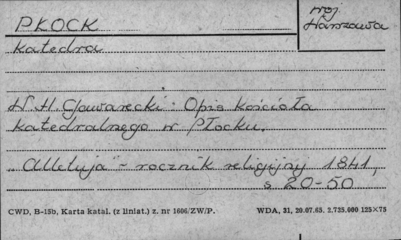 PŁOCK
woj.
Warszawa
Katedra
W. H. Gawarecki: Opis kościoła
katedralnego w Płocku.
„Alleluja" - rocznik religijny 1841,
s 20-50
CWD, B-15b, Karta katal. (z liniat.) z. nr 1606/ZW/P.
WDA, 31, 20.07.65. 2.735.000 125×75